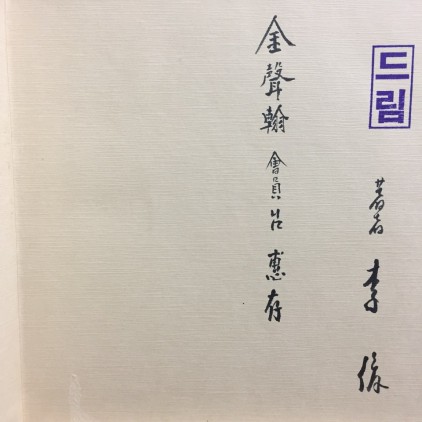 金聲翰 會員님 惠存
드림
著者 李